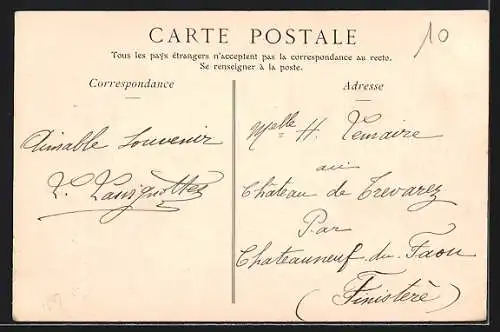 CARTE POSTALE
Tous les pays étrangers n'acceptent pas la correspondance au recto.
Se renseigner à la poste.
10
Correspondance
Aimable Souvenir
Adresse
Melle H. Lemaire
au
Château de Trevarez
Par
Chateauneuf-du-Faou
(Finistère)